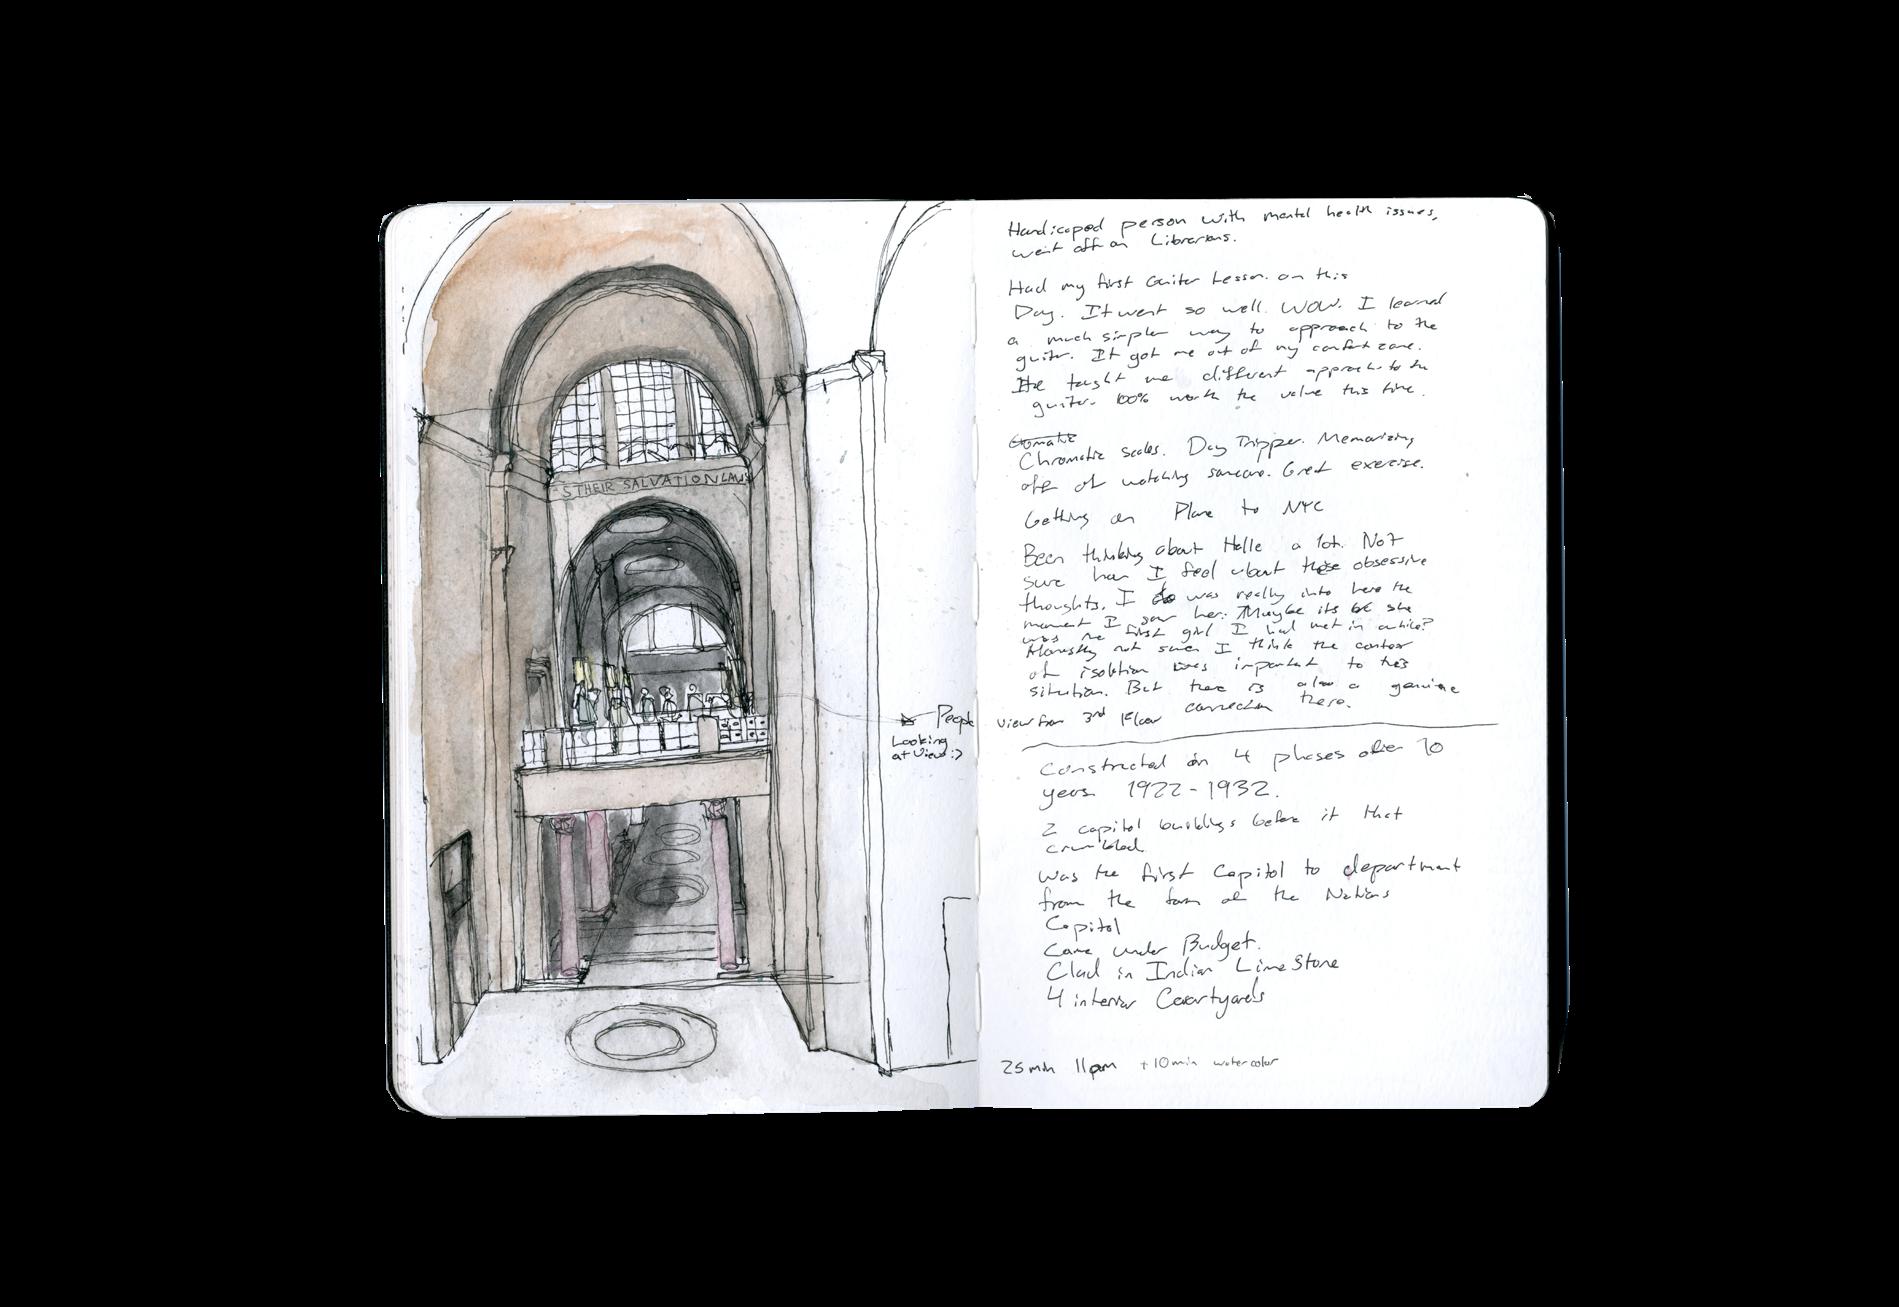 S THEIR SALVATION LAWS
People
Looking
at View :)
Handicaped person with mental health issues,
went off on Librarians.
Had my first Guiter Lesson on this
Day. It went so well. WOW. I learned
a much simpler way to approach to the
guiter. It got me out of my confert zone.
He taught me different approach to the
guiter. 100% worth the value this time.
Chromatic scales. Day Tripper. Memorizing
off of watching someone. Great exercise.
Getting on Plane to NYC
Been thinking about Halle a lot. Not
sure how I feel about these obsessive
thoughts. I was really into here the
moment I saw her. Maybe its bc she
was the first girl I had met in awhile?
Honestly not sure. I think the context
of isolation was important to this
situation. But there is also a genuine
connection there.
View from 3rd Floor
Constructed in 4 phases over 10
years 1922-1932.
2 capitol buildings before it that
crumbled.
Was the first Capitol to department
from the form of the Nations
Capitol
Came under Budget.
Clad in Indian Lime Stone
4 interior Courtyards
25 min 11pm +10min watercolor